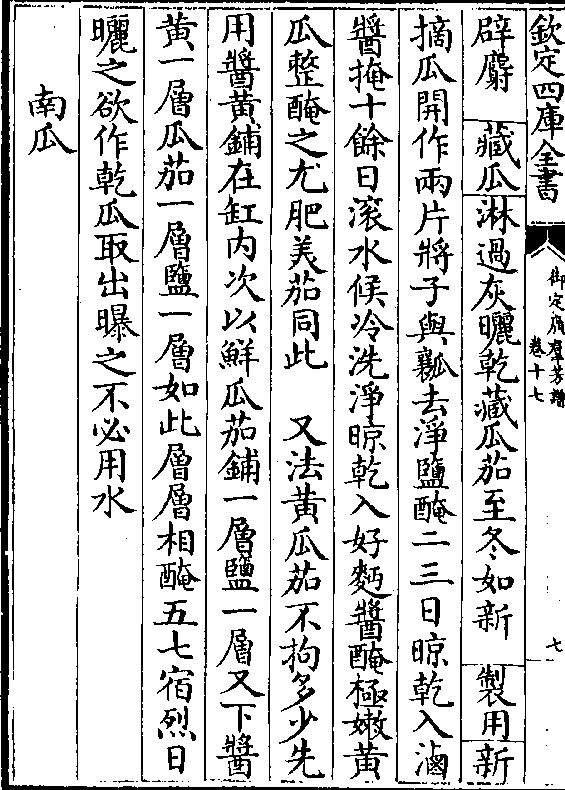 欽定四庫全書
御定佩文齋廣羣芳譜
卷十七
七
辟麝　藏瓜　淋過灰曬乾藏瓜茄至冬如新　製用　新
摘瓜開作兩片將子與瓤去淨鹽醃二三日晾乾入滷
醬掩十餘日滾水候冷洗淨晾乾入好麪醬醃極嫩黄
瓜整醃之尤肥美茄同此　又法黄瓜茄不拘多少先
用醬黄鋪在缸内次以鮮瓜茄鋪一層鹽一層又下醬
黄一層瓜茄一層鹽一層如此層層相醃五七宿烈日
曬之欲作乾瓜取出曝之不必用水
南瓜